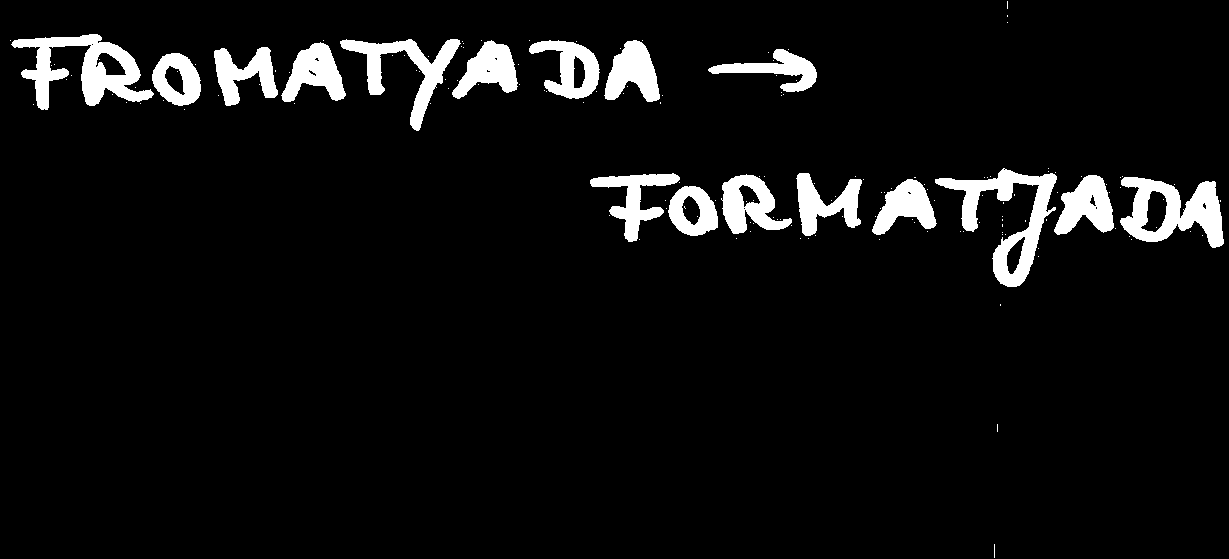 FROMATYADA →
FORMATJADA